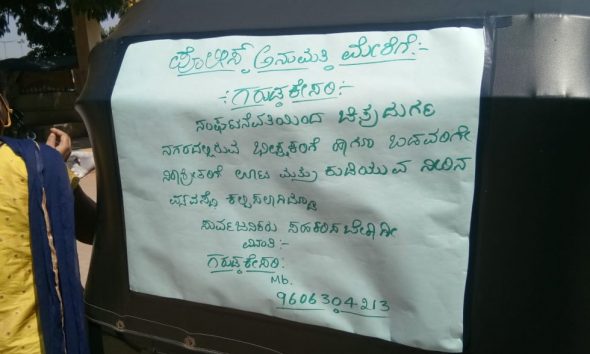 ಪೊಲೀಸ್ ಅನುಮತಿ ಮೇರೆಗೆ:-
:ಗರುಡಕೇಸರಿ:
ಸಂಘಟನೆವತಿಯಿಂದ ಚಿತ್ರದುರ್ಗ
ನಗರದಲ್ಲಿರುವ ಭೀಕ್ಷುಕರಿಗೆ ಹಾಗೂ ಬಡವರಿಗೇ
ನಿರಾಶ್ರೀತರಿಗೆ ಊಟ ಮತ್ತು ಕುಡಿಯುವ ನೀರಿನ
ವ್ಯವಸ್ಥೆ ಕಲ್ಪಿಸಲಾಗಿದ್ದು
ಸಾರ್ವಜನಿಕರು ಸಹಕರಿಸಬೇಕಾಗಿ
ವಿನಂತಿ:-
ಗರುಡಕೇಸರಿ:
Mb.
9606304213